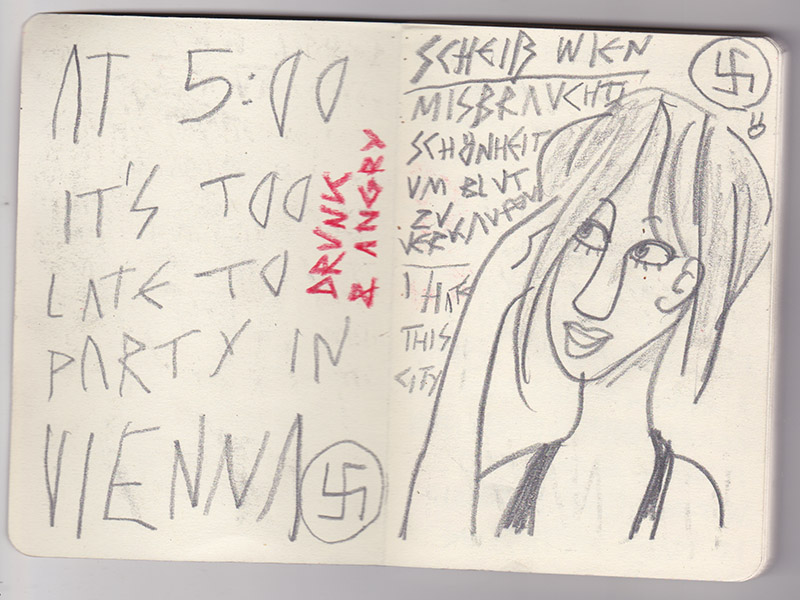 AT 5:00
IT'S TOO
LATE TO
PARTY IN
VIENNA
DRUNK
& ANGRY
SCHEIß WIEN
MISBRAUCHTI
SCHÖNHEIT
UM BLUT
ZU
VERKAUFEN
I HATE
THIS
CITY